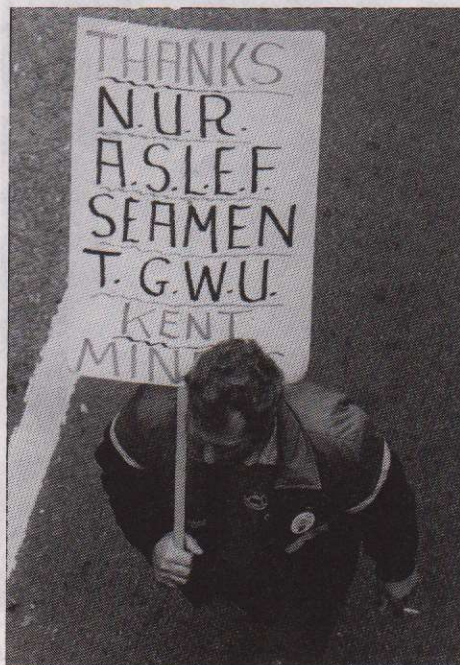 THANKS
N.U.R.
A.S.L.E.F.
SEAMEN
T.G.W.U.
KENT